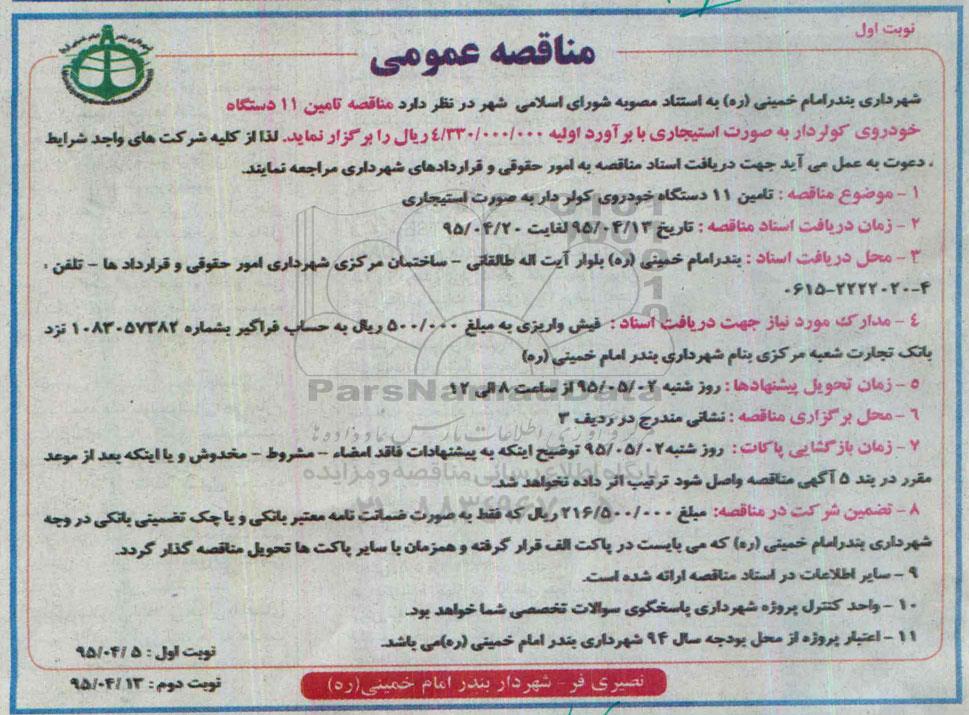 نوبت اول
مناقصه عمومی
شهرداری بندرامام خمینی (ره) به استناد مصوبه شورای اسلامی شهر در نظر دارد مناقصه تامین ۱۱ دستگاه
خودروی کولردار به صورت استیجاری با برآورد اولیه ۴/۳۳۰/۰۰۰/۰۰۰ ریال را برگزار نماید. لذا از کلیه شرکت های واجد شرایط
، دعوت به عمل می آید جهت دریافت اسناد مناقصه به امور حقوقی و قراردادهای شهرداری مراجعه نمایند.
۱ - موضوع مناقصه : تامین ۱۱ دستگاه خودروی کولر دار به صورت استیجاری
۲ - زمان دریافت اسناد مناقصه : تاریخ ۹۵/۰۴/۱۳ لغایت ۹۵/۰۴/۲۰
۳ - محل دریافت اسناد : بندرامام خمینی (ره) بلوار آیت اله طالقانی - ساختمان مرکزی شهرداری امور حقوقی و قرارداد ها - تلفن :
۰۶۱۵-۲۲۲۲۰۲۰-۴
۴ - مدارک مورد نیاز جهت دریافت اسناد : فیش واریزی به مبلغ ۵۰۰/۰۰۰ ریال به حساب فراگیر بشماره ۱۰۸۳۰۵۷۳۸۲ نزد
بانک تجارت شعبه مرکزی بنام شهرداری بندر امام خمینی (ره)
۵ - زمان تحویل پیشنهادها : روز شنبه ۹۵/۰۵/۰۲ از ساعت ۸ الی ۱۲
۶ - محل برگزاری مناقصه : نشانی مندرج در ردیف ۳
۷ - زمان بازگشایی پاکات : روز شنبه ۹۵/۰۵/۰۲ توضیح اینکه به پیشنهادات فاقد امضاء - مشروط - مخدوش و یا اینکه بعد از موعد
مقرر در بند ۵ آگهی مناقصه واصل شود ترتیب اثر داده نخواهد شد.
۸ - تضمین شرکت در مناقصه: مبلغ ۲۱۶/۵۰۰/۰۰۰ ریال که فقط به صورت ضمانت نامه معتبر بانکی و یا چک تضمینی بانکی در وجه
شهرداری بندرامام خمینی (ره) که می بایست در پاکت الف قرار گرفته و همزمان با سایر پاکت ها تحویل مناقصه گذار گردد.
۹ - سایر اطلاعات در اسناد مناقصه ارائه شده است.
۱۰ - واحد کنترل پروژه شهرداری پاسخگوی سوالات تخصصی شما خواهد بود.
۱۱ - اعتبار پروژه از محل بودجه سال ۹۴ شهرداری بندر امام خمینی (ره)می باشد.
نوبت اول : ۹۵/۰۴/۵
نوبت دوم : ۹۵/۰۴/۱۳
نصیری فر - شهردار بندر امام خمینی(ره)
ParsNamadData
پایگاه اطلاع رسانی مناقصه و مزایده